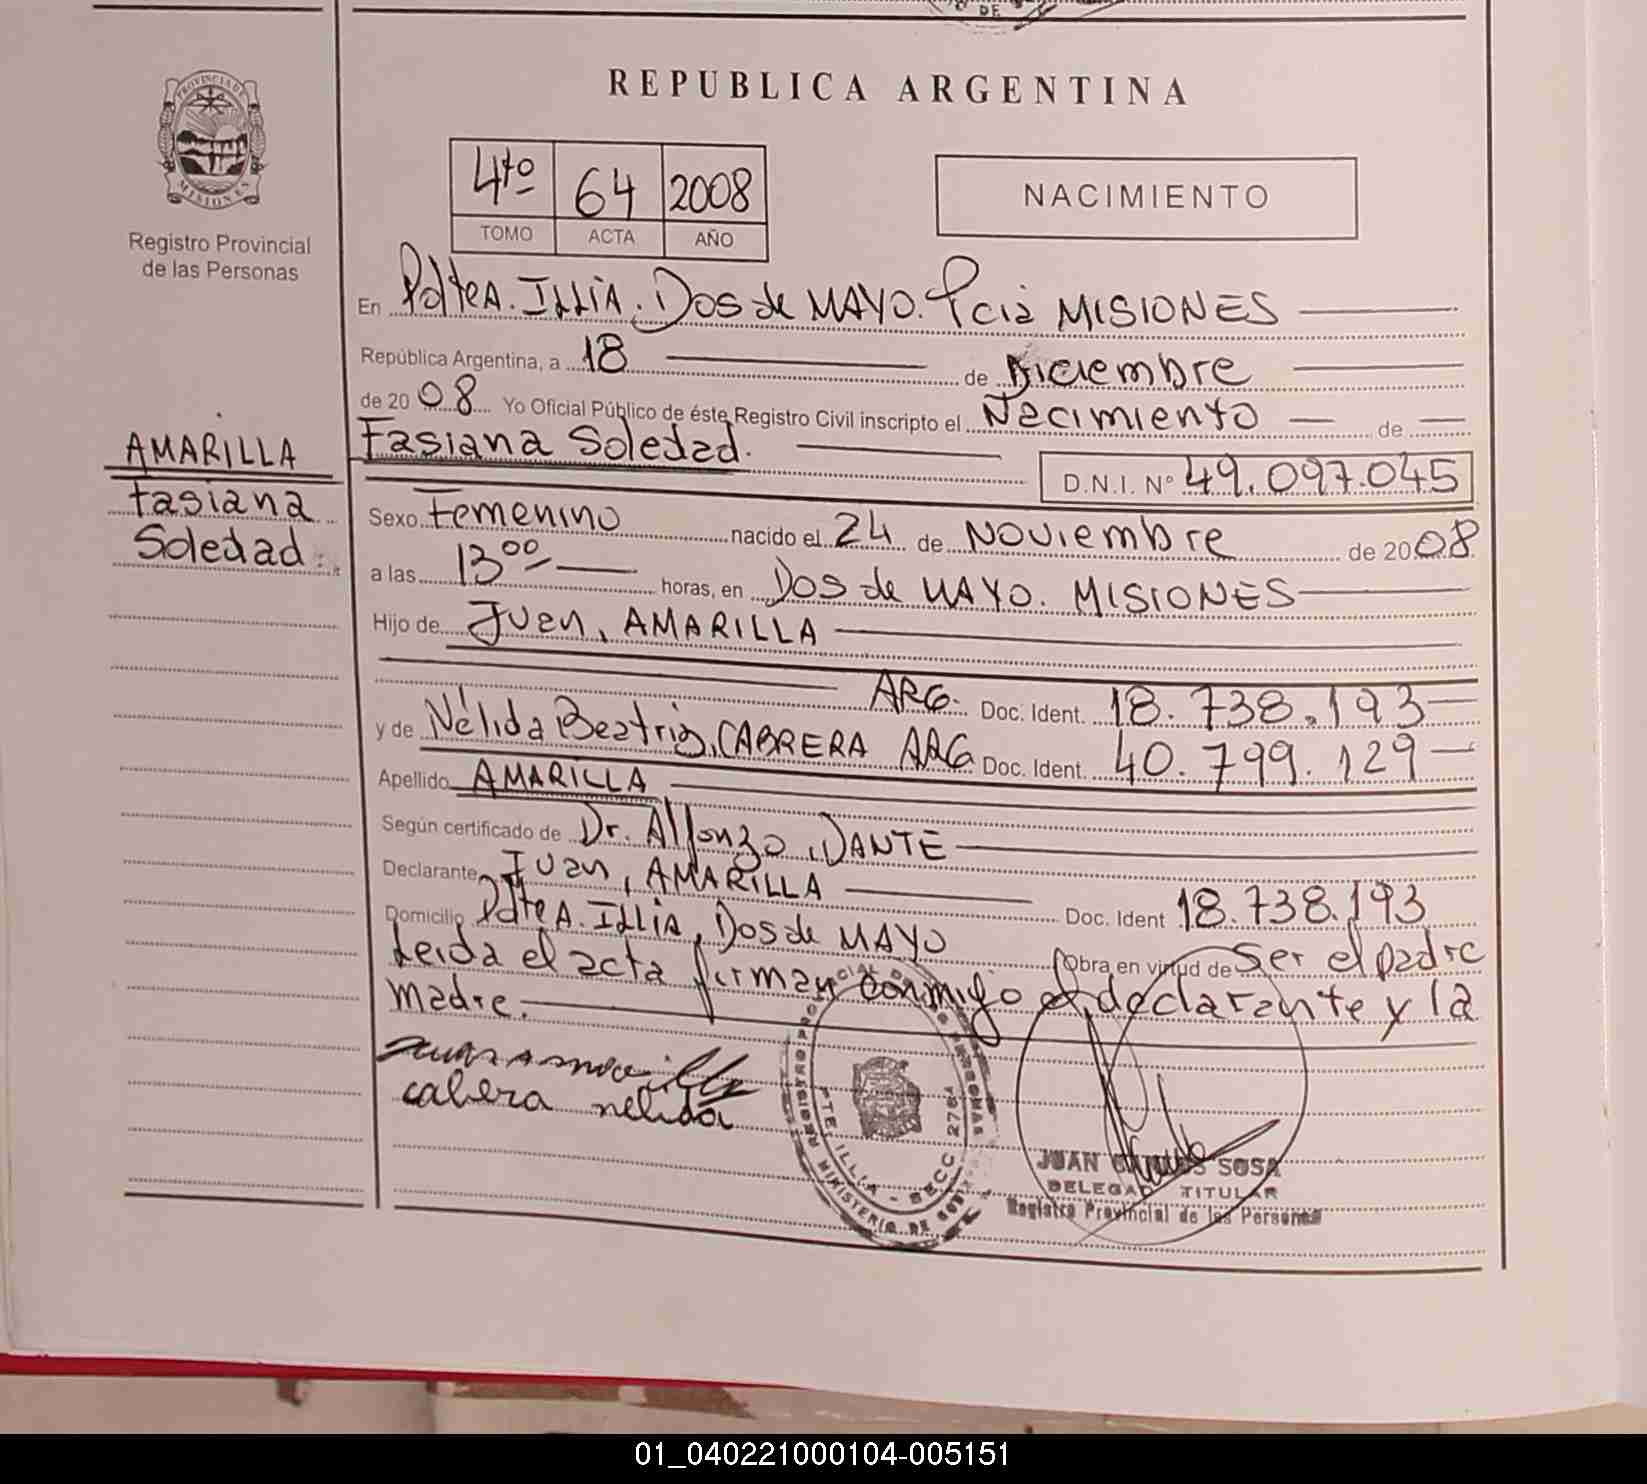 DE
REPUBLICA ARGENTINA
PROVINCIA DE
MISIONES
Registro Provincial
de las Personas
4to 64 2008
TOMO ACTA AÑO
NACIMIENTO
En Pdte A. ILLIA. Dos de MAYO. Pcia MISIONES
República Argentina, a 18 de Diciembre
de 2008 Yo Oficial Público de éste Registro Civil inscripto el Nacimiento de
Fasiana Soledad.
D.N.I. Nº 49.097.045
AMARILLA
Fasiana
Soledad.
Sexo Femenino nacido el 24 de Noviembre de 2008
a las 13 00 horas, en Dos de MAYO. MISIONES
Hijo de Juan, AMARILLA
ARG. Doc. Ident. 18.738.193
y de Nélida Beatriz, CABRERA ARG Doc. Ident. 40.799.129
Apellido AMARILLA
Según certificado de Dr. Alfonzo, DANTE
Declarante Juan, AMARILLA Doc. Ident 18.738.193
Domicilio Pdte A. ILLIA, Dos de MAYO
Obra en virtud de Ser el padre
Leida el acta firman conmigo el declarante y la
madre.
Juan Amarilla
cabera nelida
PTE. ILLIA - SECC. 2767
MINISTERIO DE
JUAN CARLOS SOSA
DELEGADO TITULAR
Registro Provincial de las Personas
01_040221000104-005151